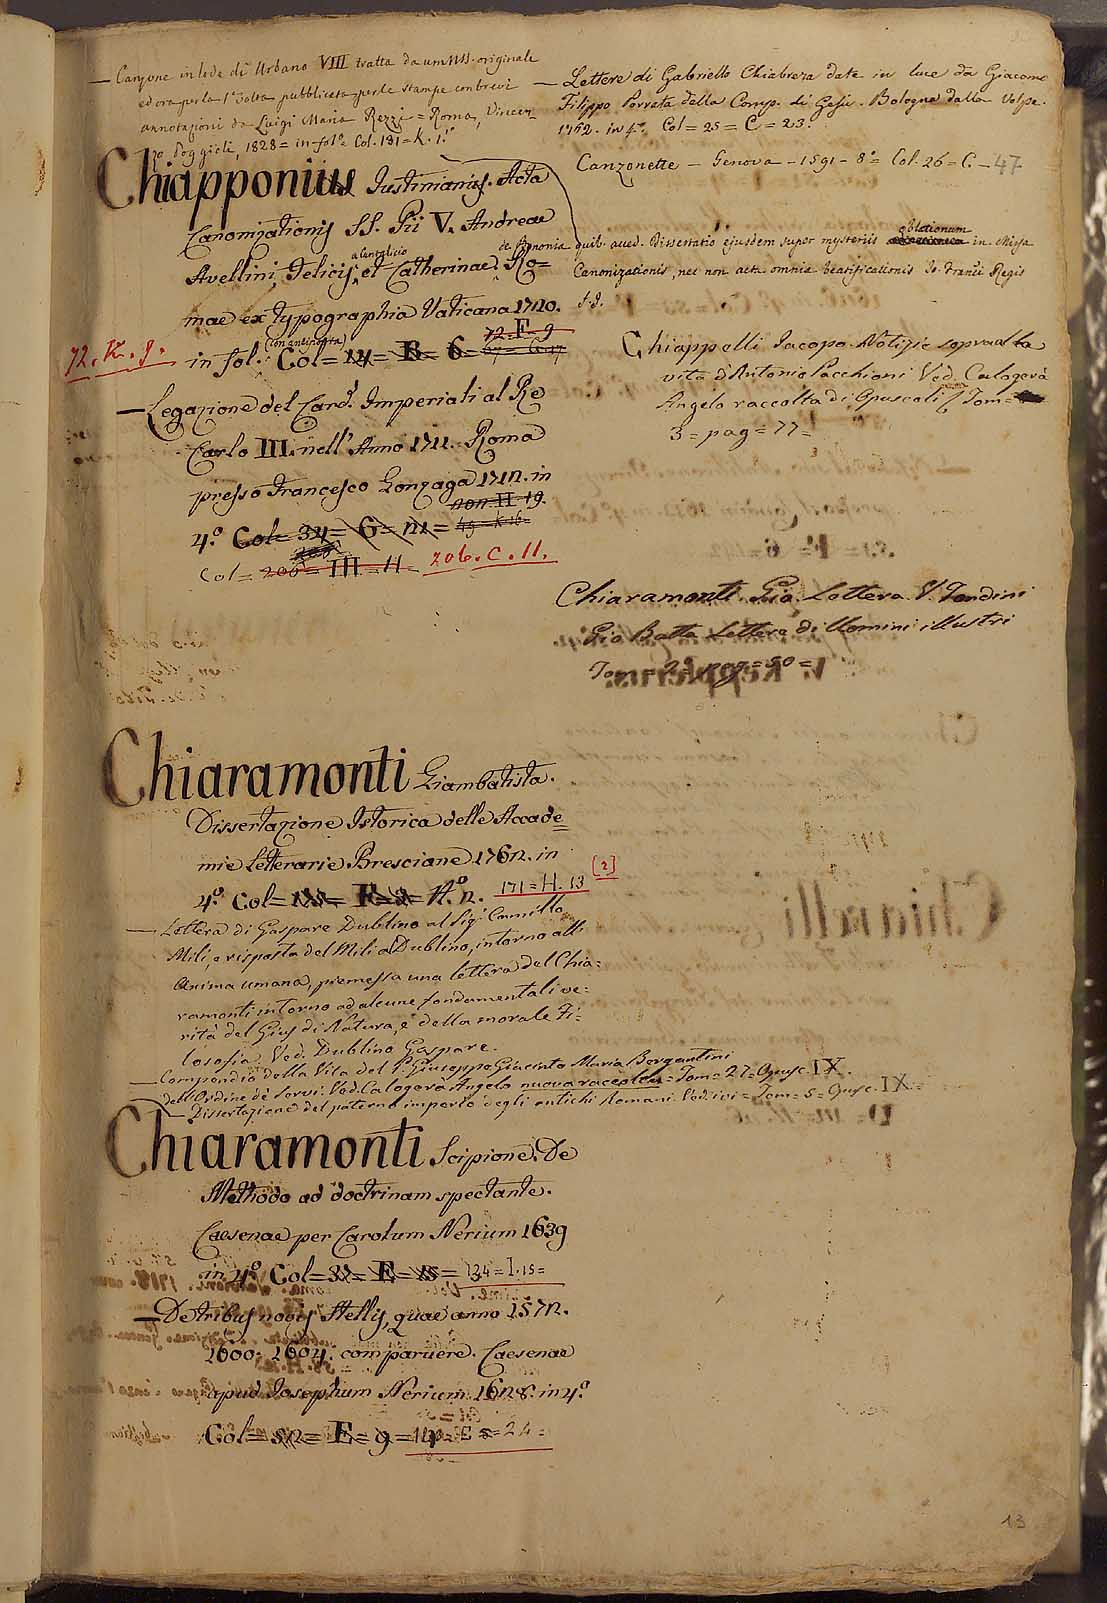 — Canzone in lode di Urbano VIII tratta da un MS. originale
ed ora per la 1ª volta pubblicata per le stampe con brevi
annotazioni da Luigi Maria Rezzi = Roma, Vincen-
zo Poggioli, 1828 = in-fol.º Col. 131 = K. 1.º
Chiapponius Justinianus. Acta
Canonizationis SS. Pii V. Andreae
Avellini, Felicis a Cantalicio et Catherinae de Bononia. Ro=
mae ex typographia Vaticana 1720.
72. K. 9. in fol: (con antiporta) Col = 14 = B = 6 = 67 = G. 17
72. F. 9
— Legazione del Card.l Imperiali al Re
Carlo III. nell' Anno 1711. Roma
presso Francesco Gonzaga 1712. in
4.º Col = 34 = G = 12 = 49 = K. 16 =
Col = 206 = III = 11 206. C. 11.
— Lettere di Gabriello Chiabrera date in luce da Giacomo
Filippo Porrata della Comp. di Gesù. Bologna dalla Volpe.
1762. in 4º. Col = 25 = C = 23.
Canzonette — Genova — 1591 — 8º = Col. 26 = C. — 47
quib. acced. Dissertatio ejusdem super mysteriis oblationum in Missa
Canonizationis, nec non acta omnia beatificationis Jo. Franci Regis
S.J.
Chiappelli Jacopo. Notizie sopra la
vita d'Antonio Pacchioni Ved. Calogerà
Angelo raccolta di Opuscoli Tom =
3 = pag = 77 =
Chiaramonti Gio. Lettera V. Tondini
Gio Batta Lettere di Uomini illustri
Tom. 2º pag = 50 =
Chiaramonti Giambatista.
Dissertazione Istorica delle Accade=
mie Letterarie Bresciane 1762. in
4.º Col = F = H.º 2. 171 = H. 13 [2]
— Lettera di Gaspare Dublino al Sig.r Cammillo
Mili, e risposta del Mili al Dublino, intorno all'
Anima umana, premessa una lettera del Chia=
ramonti intorno ad alcune fondamentali ve=
rità del Gius di Natura, e della morale Fi=
losofia. Ved. Dublino Gaspare.
— Compendio della Vita del P. Giuseppe Giacinto Maria Bergantini
dell'Ordine de' Servi. Ved. Calogerà Angelo nuova raccolta = Tom = 27 = Opusc. IX.
— Dissertazione del paterno imperio degli antichi Romani. Ved. ivi = Tom = 5 = Opusc. IX =
Chiaramonti Scipione. De
Methodo ad doctrinam spectante.
Caesenae per Carolum Nerium 1639
in 4.º Col = 32 = E = 15 = 134 = I. 15 =
— De tribus novis Stellis, quae anno 1572.
1600. 1604. comparuere. Caesenae
apud Josephum Nerium 1628. in 4.º
Col = 52 = E = 9 = = 24 =
13